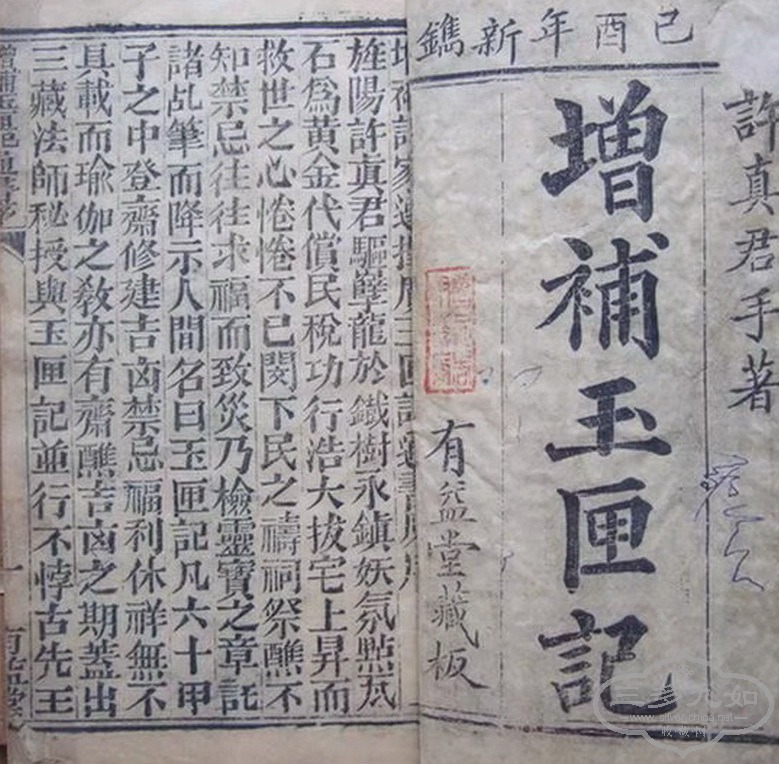 己酉年新鐫
許真君手著
增補玉匣記
有益堂藏板
旌陽許眞君驅孽龍於鐵樹永鎮妖氛點瓦
石爲黃金代償民稅功行浩大拔宅上昇而
救世之心惓惓不已閔下民之禱祠祭醮不
知禁忌往往求福而致災乃檢靈寶之章託
諸乩筆而降示人間名曰玉匣記凡六十甲
子之中登齋修建吉凶禁忌福利休祥無不
具載而瑜伽之敎亦有齋醮吉凶之期蓋出
三藏法師秘授與玉匣記並行不悖古先王
一
三多九如
www.silvercnchina.net
收藏网